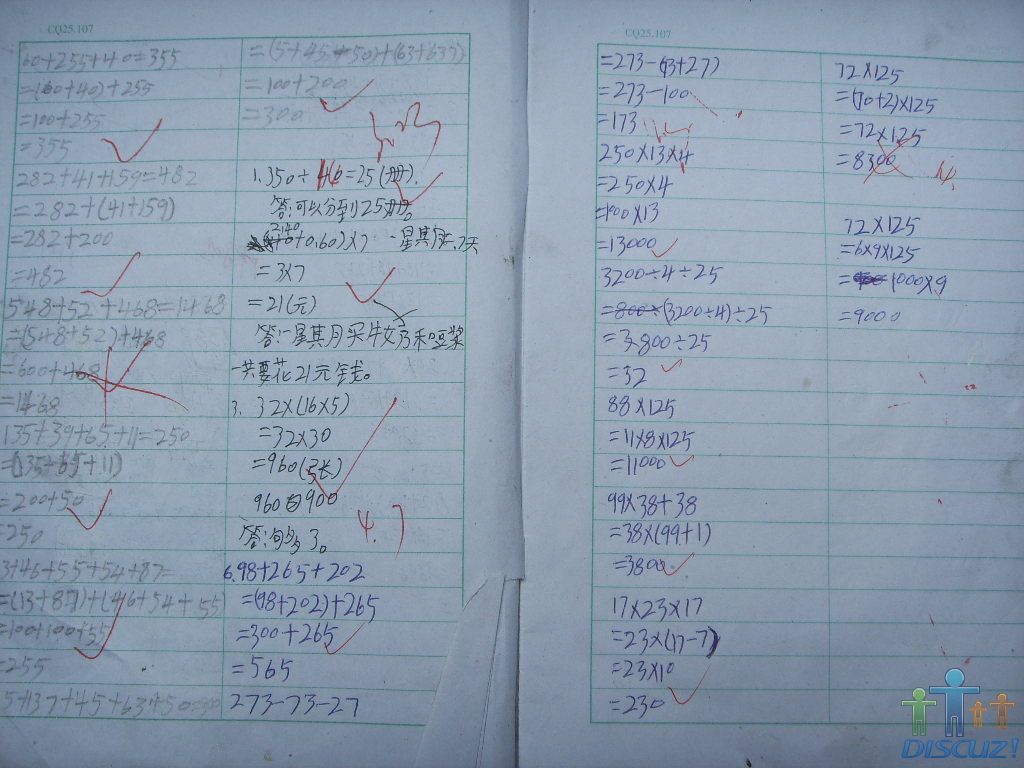 CQ25.107
60+255+40=355
=(60+40)+255
=100+255
=355
282+41+159=482
=282+(41+159)
=282+200
=482
548+52+468=1468
=(548+52)+468
=600+468
=1468
135+39+65+11=250
=200+50
250
3+46+55+54+87=
=(13+87)+(46+54+55)
=100+100+55
=255
5+137+45+63+50=300
=(5+45+50)+(63+637)
=100+200
=300
1.350÷14=25(册).
答:可以分到25册。
+0.60)×7 一星其月=7天
=3×7
=21(元)
答:一星其月买牛奶和豆浆
一共要花21元钱。
3. 32×(16×5)
=32×30
=960(张)
960 900
答:够 3。
6.98+265+202
=(98+202)+265
=300+265
=565
273-73-27
CQ25.107
=273-(73+27)
=273-100
=173
250×13×4
=250×4
=100×13
=13000
3200÷4÷25
=800÷(3200÷4)÷25
=3800÷25
=32
88×125
=11×8×125
=11000
99×38+38
=38×(99+1)
=3800
17×23×17
=23×(17-7)
=23×10
=230
72×125
=(70+2)×125
=72×125
=8300
72×125
=6×9×125
=1000×9
=9000
DISCUZ!